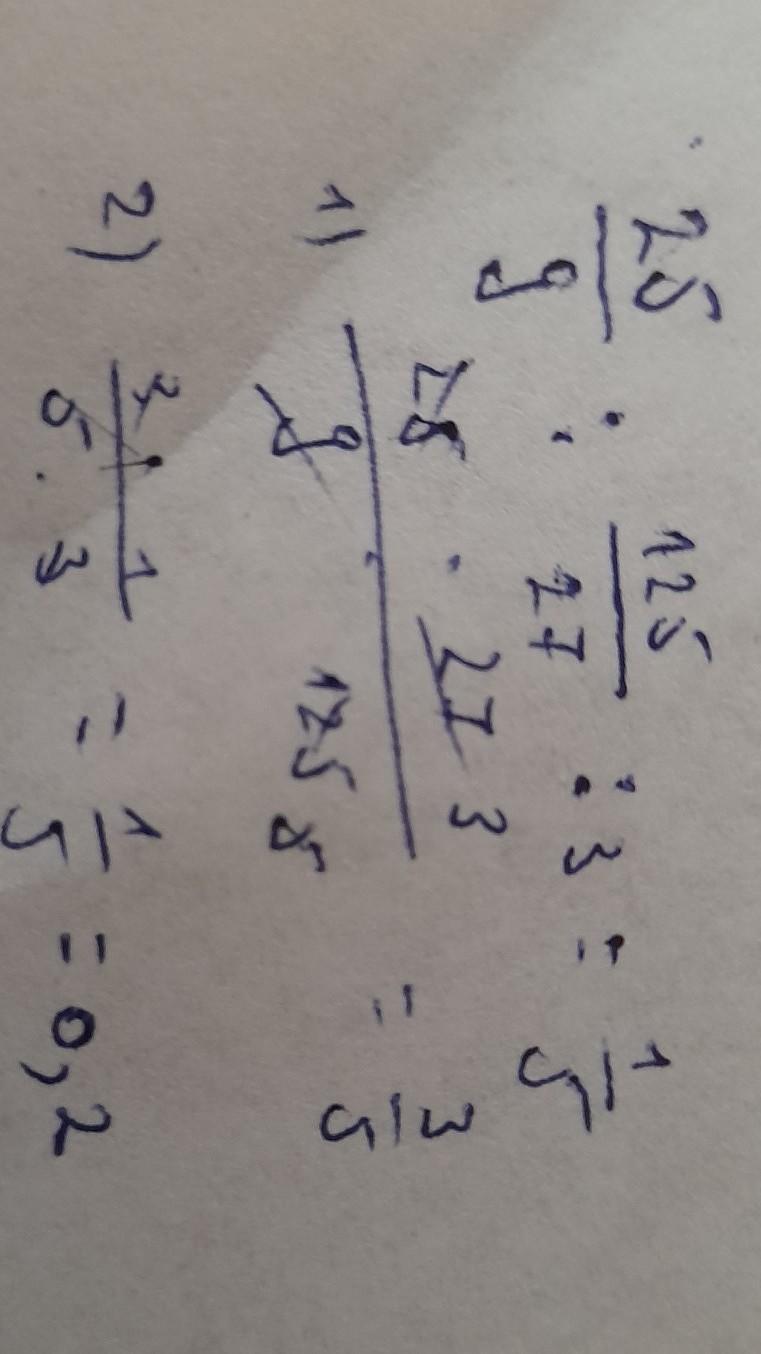 25/9 : 125/27 : 3 = 1/5
1) 25 · 27 3 / 9 · 125 5 = 3/5
2) 3 · 1 / 5 · 3 = 1/5 = 0,2